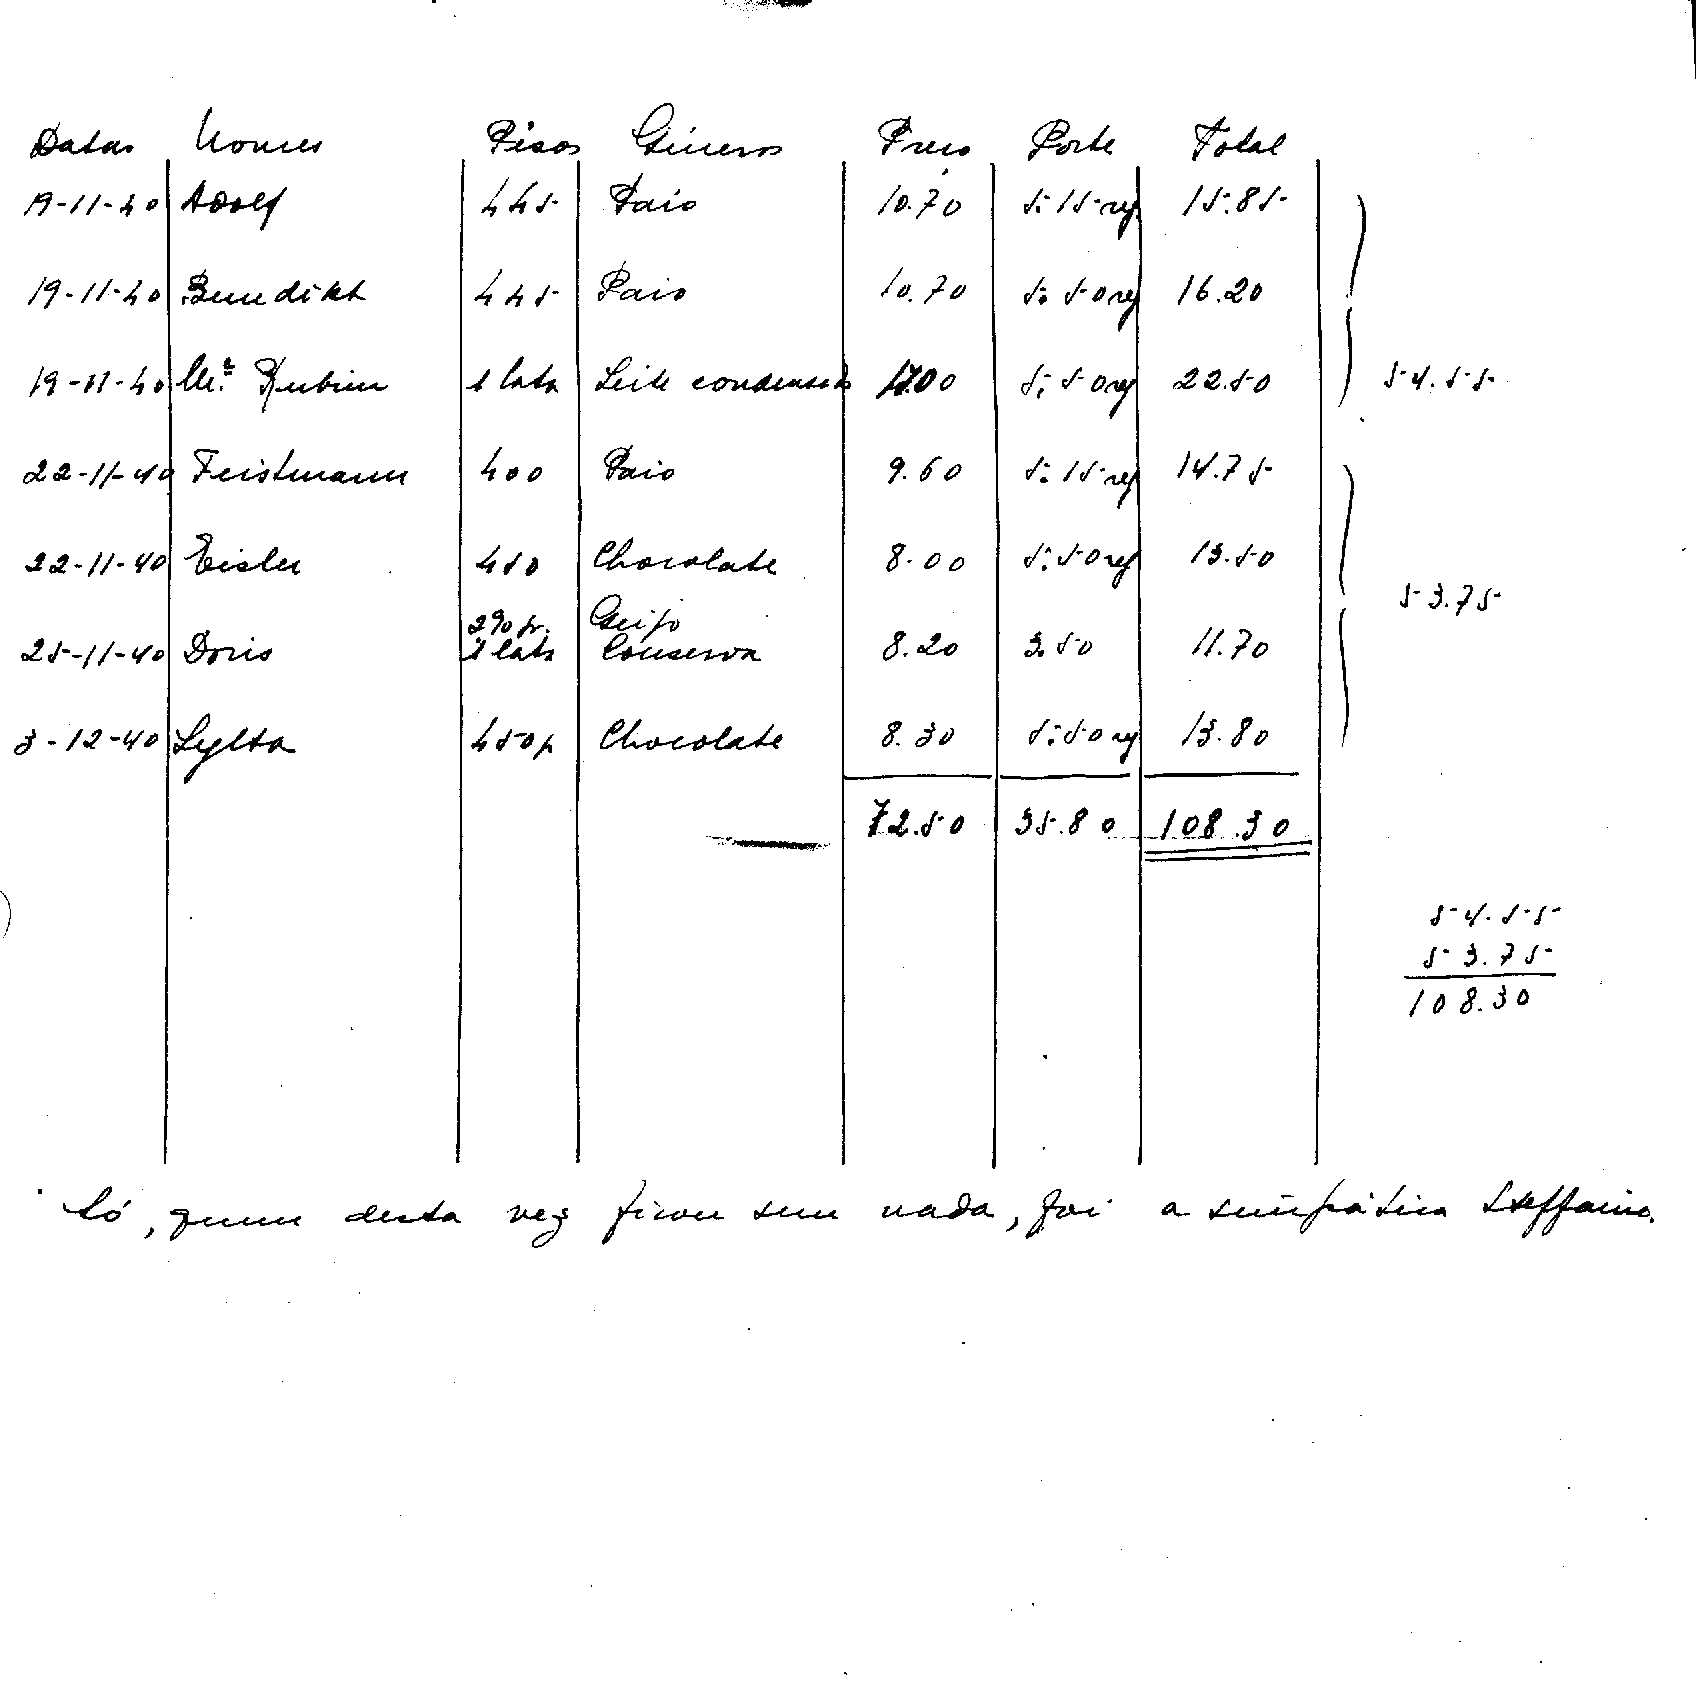 Datas Nomes Pêsos Géneros Preço Porte Total
19-11-40 Adolf 445 Paio 10.70 5.15 reg 15.85
19-11-40 Benedikt 445 Paio 10.70 5.50 reg 16.20
19-11-40 Mr. Rubien 1 lata Leite condensado 17.00 5.50 reg 22.50 54.55
22-11-40 Feistmann 400 Paio 9.60 5.15 reg 14.75
22-11-40 Eisler 450 Chocolate 8.00 5.50 reg 13.50
53.75
290 gr. Queijo
25-11-40 Doris 1 lata Conserva 8.20 3.50 11.70
3-12-40 Sylta 450 gr Chocolate 8.30 5.50 reg 13.80
72.50 35.80 108.30
54.55
53.75
108.30
Só, quem desta vez ficou sem nada, foi a simpática Steffanie.